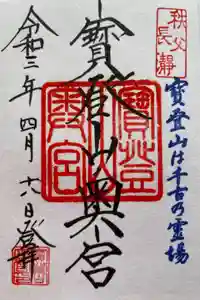 秩父
長瀞
寳登山は千古の霊場
寳登山奥宮
令和三年四月六日登拝